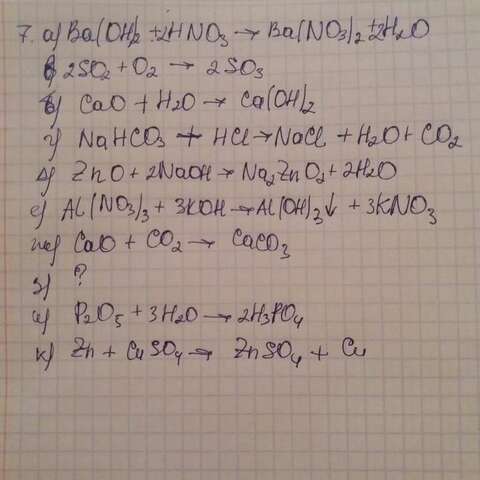 7. а) Ba(OH)2 + 2HNO3 → Ba(NO3)2 + 2H2O
в) 2SO2 + O2 → 2SO3
б) CaO + H2O → Ca(OH)2
г) NaHCO3 + HCl → NaCl + H2O + CO2
д) ZnO + 2NaOH → Na2ZnO2 + 2H2O
е) Al(NO3)3 + 3KOH → Al(OH)3↓ + 3KNO3
ж) CaO + CO2 → CaCO3
з) ?
и) P2O5 + 3H2O → 2H3PO4
к) Zn + CuSO4 → ZnSO4 + Cu